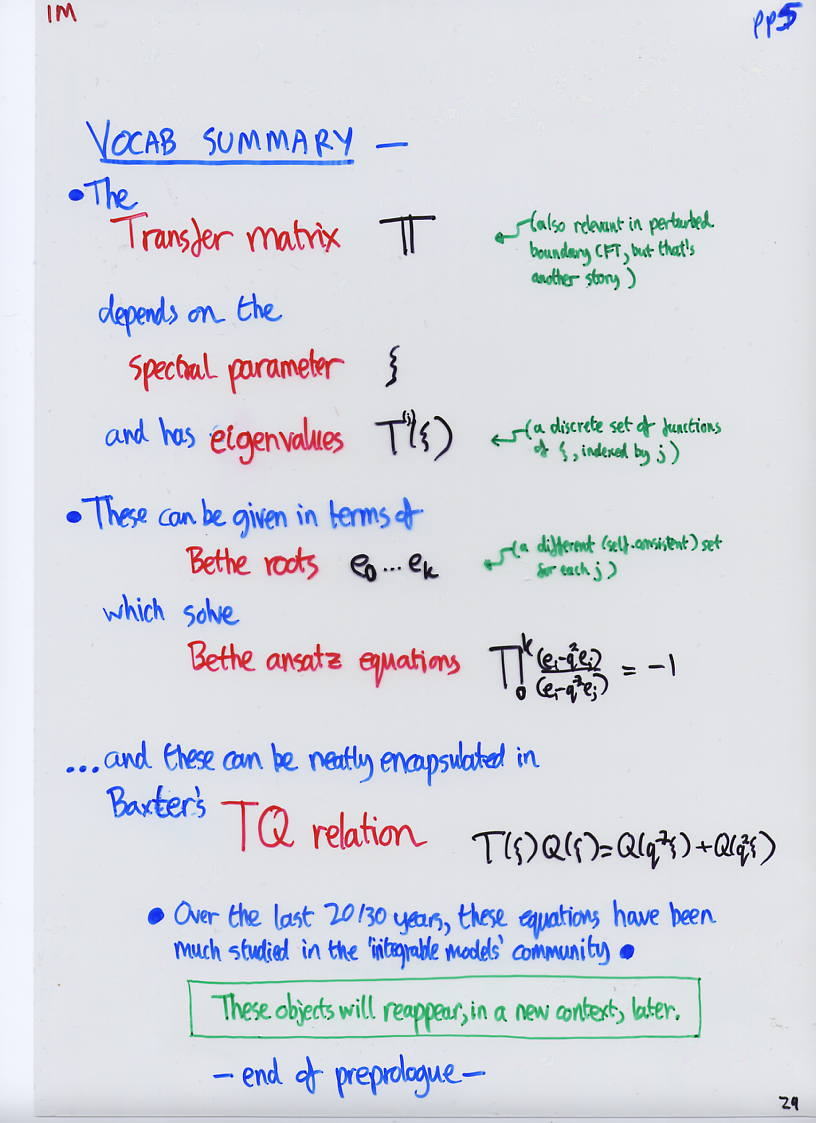 IM
pp5
VOCAB SUMMARY —
• The
Transfer matrix 𝕋
(also relevant in perturbed
boundary CFT, but that's
another story)
depends on the
spectral parameter ξ
and has eigenvalues T^(j)(ξ)
(a discrete set of functions
of ξ, indexed by j)
• These can be given in terms of
Bethe roots e₀ ... eₖ
(a different (self-consistent) set
for each j)
which solve
Bethe ansatz equations ∏₀ᵏ (eᵢ-q²eⱼ)/(eᵢ-q⁻²eⱼ) = -1
...and these can be neatly encapsulated in
Baxter's TQ relation T(ξ)Q(ξ)=Q(q⁻²ξ)+Q(q²ξ)
• Over the last 20/30 years, these equations have been
much studied in the 'integrable models' community •
These objects will reappear, in a new context, later.
— end of preprologue —
29